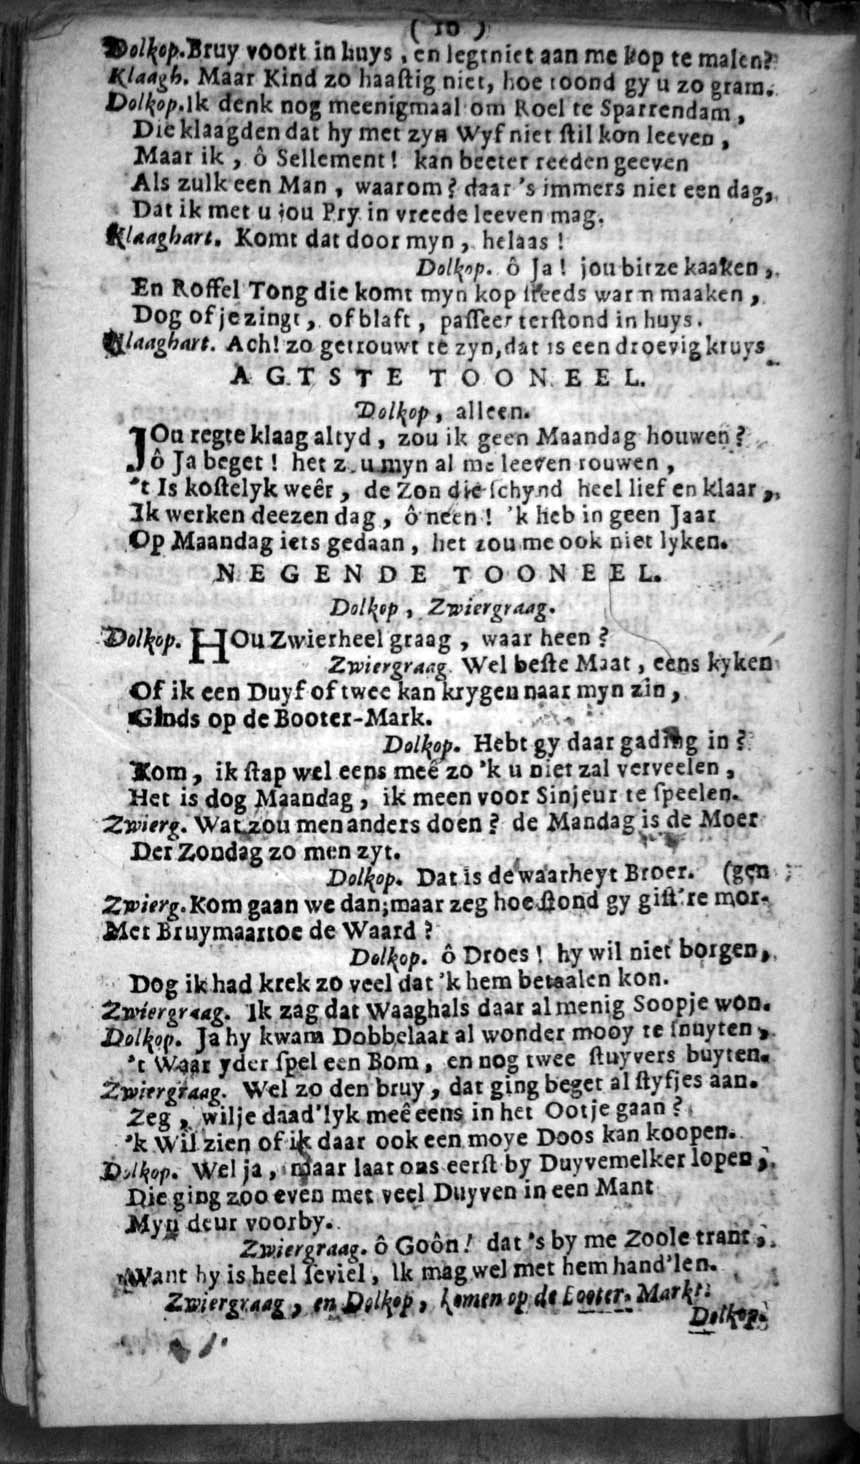 ( 10 )
Dolkop. Bruy voort in huys, en legt niet aan me kop te malen?
Klaagh. Maar Kind zo haaſtig niet, hoe toond gy u zo gram.
Dolkop. Ik denk nog meenigmaal om Roel te Sparrendam,
Die klaagden dat hy met zyn Wyf niet ſtil kon leeven,
Maar ik, ô Sellement! kan beeter reeden geeven
Als zulk een Man, waarom? daar 's immers niet een dag,
Dat ik met u jou Pry in vreede leeven mag.
Klaaghart. Komt dat door myn, helaas!
Dolkop. ô Ja! jou bitze kaaken,
En Roffel Tong die komt myn kop ſteeds warm maaken,
Dog of je zingt, of blaft, paſſeer terſtond in huys.
Klaaghart. Ach! zo getrouwt te zyn, dat is een droevig kruys
AGTSTE TOONEEL.
Dolkop, alleen.
JOu regte klaag altyd, zou ik geen Maandag houwen?
ô Ja beget! het zou myn al me leeven rouwen,
't Is koſtelyk weêr, de Zon die ſchynd heel lief en klaar,
Ik werken deezen dag, ô neen! 'k heb in geen Jaar
Op Maandag iets gedaan, het zou me ook niet lyken.
NEGENDE TOONEEL.
Dolkop, Zwiergraag.
Dolkop. HOu Zwierheel graag, waar heen?
Zwiergraag. Wel beſte Maat, eens kyken
Of ik een Duyf of twee kan krygen naar myn zin,
Ginds op de Booter-Mark.
Dolkop. Hebt gy daar gading in?
Kom, ik ſtap wel eens meê zo 'k u niet zal verveelen,
Het is dog Maandag, ik meen voor Sinjeur te ſpeelen.
Zwierg. Wat zou men anders doen? de Mandag is de Moer
Der Zondag zo men zyt.
Dolkop. Dat is de waarheyt Broer. (gen
Zwierg. Kom gaan we dan; maar zeg hoe ſtond gy giſt're mor-
Met Bruymaartoe de Waard?
Dolkop. ô Droes! hy wil niet borgen,
Dog ik had krek zo veel dat 'k hem betaalen kon.
Zwiergraag. Ik zag dat Waaghals daar al menig Soopje won.
Dolkop. Ja hy kwam Dobbelaar al wonder mooy te ſnuyten,
't Waar yder ſpel een Bom, en nog twee ſtuyvers buyten.
Zwiergraag. Wel zo den bruy, dat ging beget al ſtyfjes aan.
Zeg, wilje daad'lyk meê eens in het Ootje gaan?
'k Wil zien of ik daar ook een moye Doos kan koopen.
Dolkop. Wel ja, maar laat ons eerſt by Duyvemelker lopen,
Die ging zoo even met veel Duyven in een Mant
Myn deur voorby.
Zwiergraag. ô Goôn! dat 's by me Zoole trant,
Want hy is heel ſeviel, Ik mag wel met hem hand'len.
Zwiergraag, en Dolkop, komen op de Booter-Markt.
Dolkop.